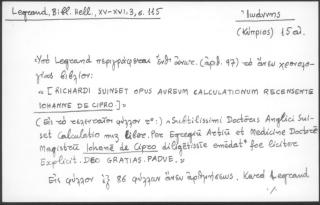 Legrand, Bibl. Hell., XV-XVI, 3, σ. 115
Ἰωάννης
(Κύπριος) 15 αἰ.
«Ὑπὸ Legrand περιγράφεται ἐνθ' ἀνωτ. (ἀριθ. 97) τὸ ἄνευ χρονολο-
γίας βιβλίον:
«[RICHARDI SUINSET OPUS AUREUM CALCULATIONUM RECENSENTE
IOHANNE DE CIPRO]»
(Εἰς τὸ τελευταῖον φύλλον τ°:) «Subtilissimi Doctoris Anglici Sui-
set Calculationū liber. Per Egregiū Artiū et Medicine Doctorē
Magistrū Iohanē de Cipro diligētissīe emēdat° foe liciter
Explicit. DEO GRATIAS. PADUE.»
Εἰς φύλλον ἐξ 86 φύλλων ἄνευ ἀριθμήσεως. Κατὰ Legrand